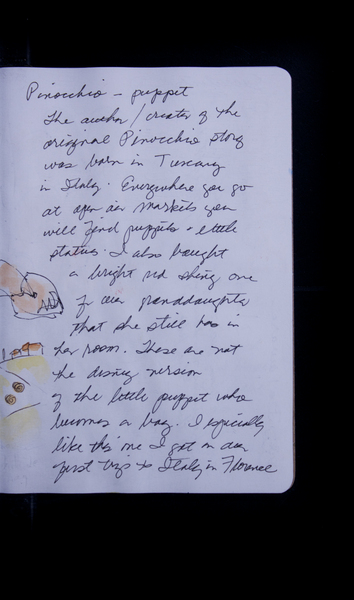 Pinocchio - puppet
The author/creator of the
original Pinocchio story
was born in Tuscany
in Italy. Everywhere you go
at open air markets you
will find puppets + little
statues. I also bought
a bright red shiny one
for our granddaughter
that she still has in
her room. These are not
the disney version
of the little puppet who
becomes a boy. I especially
like this one I got on our
first trip to Italy in Florence